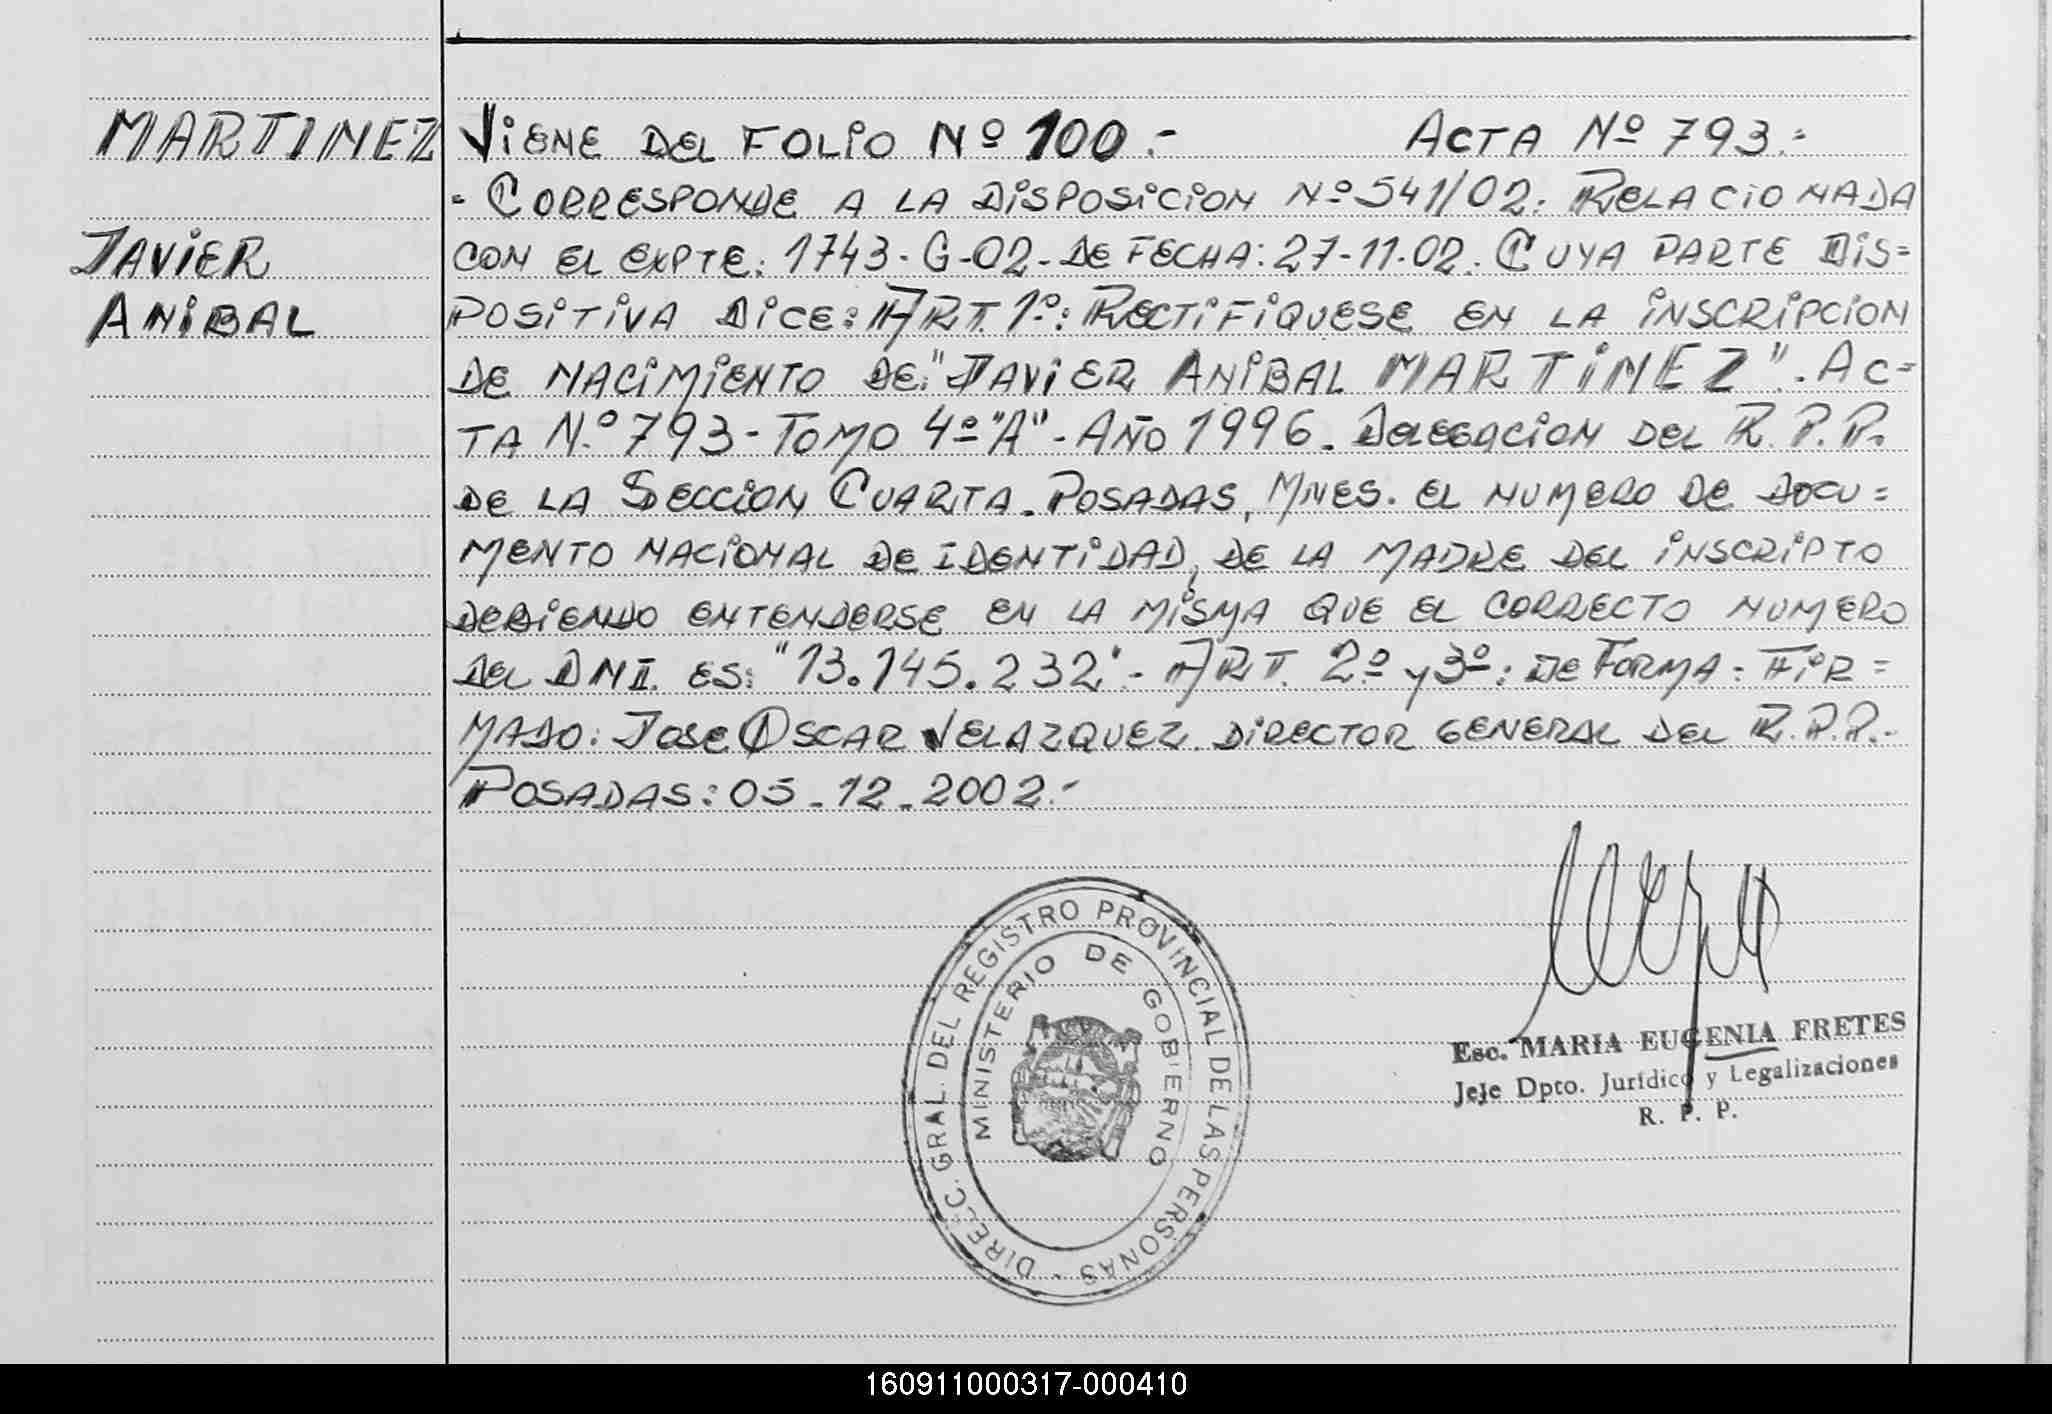 MARTINEZ
JAVIER
ANIBAL
VIENE DEL FOLIO Nº 100.- ACTA Nº 793.=
- CORRESPONDE A LA DISPOSICION Nº 541/02. RELACIONADA
CON EL EXPTE: 1743-G-02- DE FECHA: 27-11-02. CUYA PARTE DIS=
POSITIVA DICE: ART. 1º: RECTIFIQUESE EN LA INSCRIPCION
DE NACIMIENTO DE: "JAVIER ANIBAL MARTINEZ". AC=
TA N.º 793- TOMO 4º "A" - AÑO 1996. DELEGACION DEL R.P.P.
DE LA SECCION CUARTA. POSADAS, MNES. EL NUMERO DE DOCU=
MENTO NACIONAL DE IDENTIDAD, DE LA MADRE DEL INSCRIPTO
DEBIENDO ENTENDERSE EN LA MISMA QUE EL CORRECTO NUMERO
DEL DNI. ES: "13.145.232"- ART. 2º Y 3º: DE FORMA: FIR=
MADO: JOSE OSCAR VELAZQUEZ. DIRECTOR GENERAL DEL R.P.P.-
POSADAS: 05-12-2002.-
DIRECC. GRAL. DEL REGISTRO PROVINCIAL DE LAS PERSONAS -
MINISTERIO DE GOBIERNO
Esc. MARIA EUGENIA FRETES
Jefe Dpto. Jurídico y Legalizaciones
R. P. P.
160911000317-000410